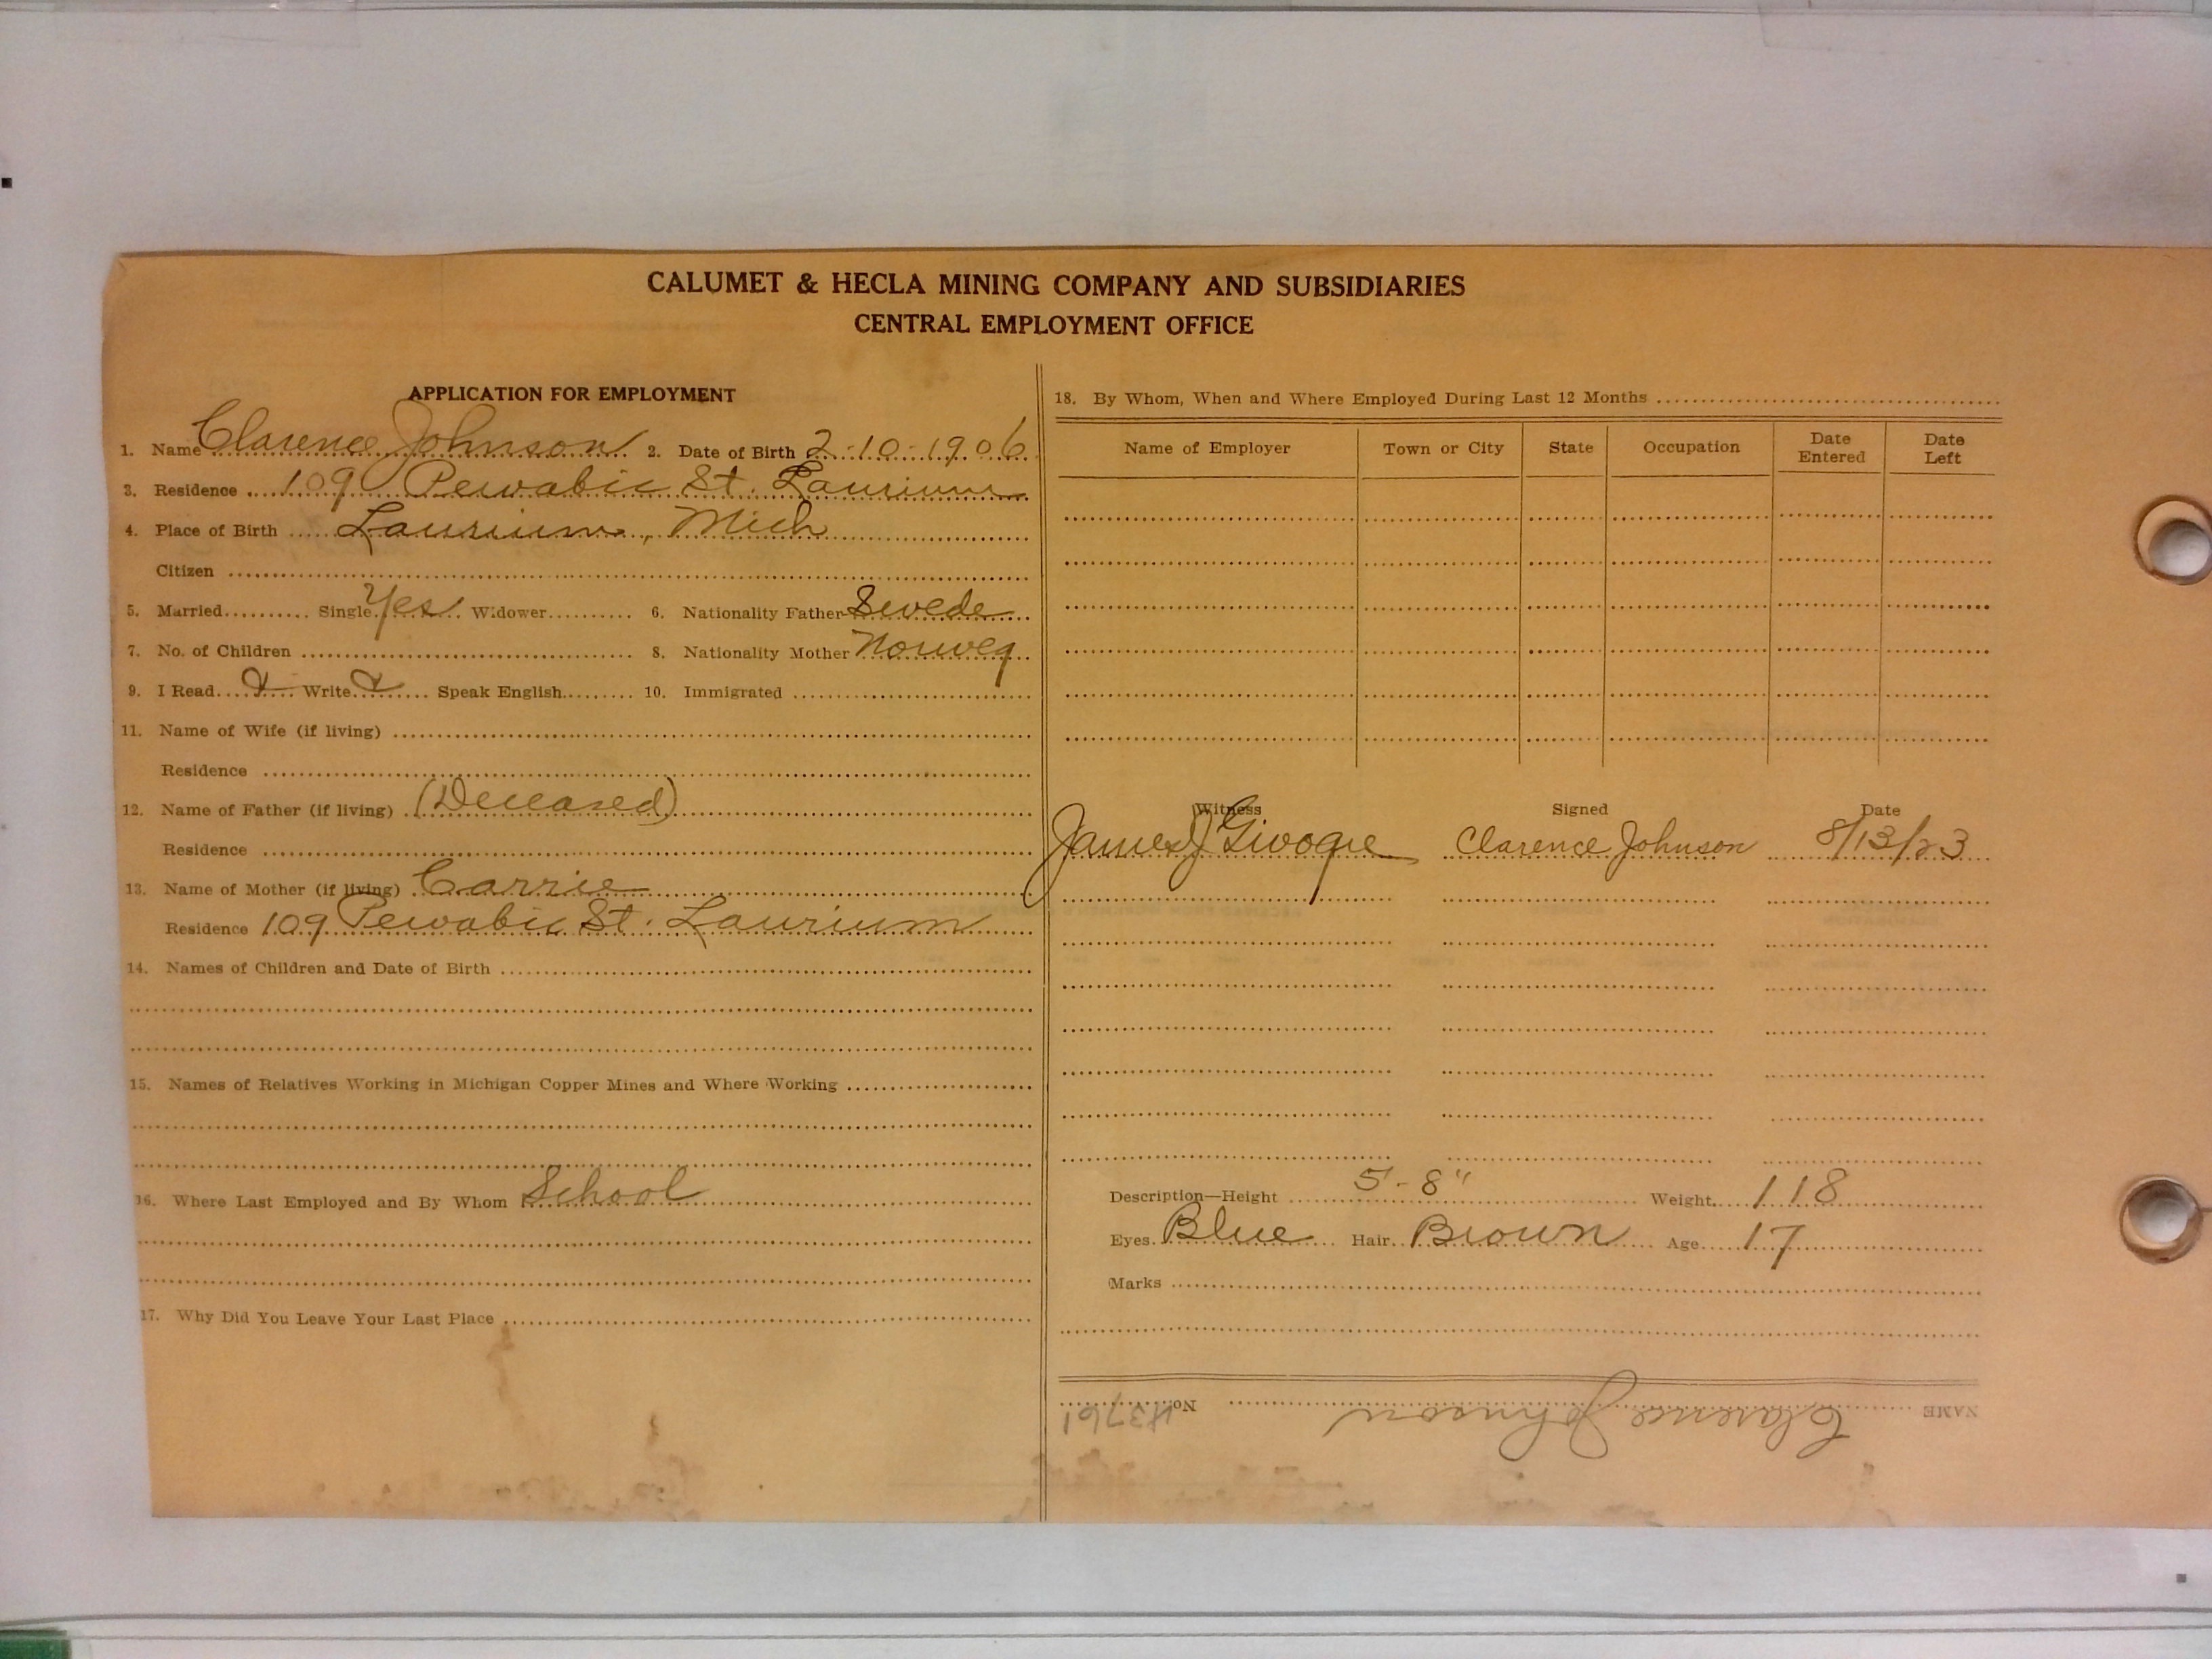 CALUMET & HECLA MINING COMPANY AND SUBSIDIARIES
CENTRAL EMPLOYMENT OFFICE
APPLICATION FOR EMPLOYMENT
1. Name Clarence Johnson 2. Date of Birth 2-10-1906
3. Residence 109 Pewabic St. Laurium
4. Place of Birth Laurium, Mich
Citizen
5. Married Single Yes Widower 6. Nationality Father Swede
7. No. of Children 8. Nationality Mother Norweg
9. I Read X Write X Speak English 10. Immigrated
11. Name of Wife (if living)
Residence
12. Name of Father (if living) (Deceased)
Residence
13. Name of Mother (if living) Carrie
Residence 109 Pewabic St. Laurium
14. Names of Children and Date of Birth
15. Names of Relatives Working in Michigan Copper Mines and Where Working
16. Where Last Employed and By Whom School
17. Why Did You Leave Your Last Place
18. By Whom, When and Where Employed During Last 12 Months
Name of Employer Town or City State Occupation Date Entered Date Left
Witness Signed Date
James J Clarence Johnson 8/13/23
Description—Height 5'-8" Weight 118
Eyes Blue Hair Brown Age 17
Marks
NAME Clarence Johnson No. 43761